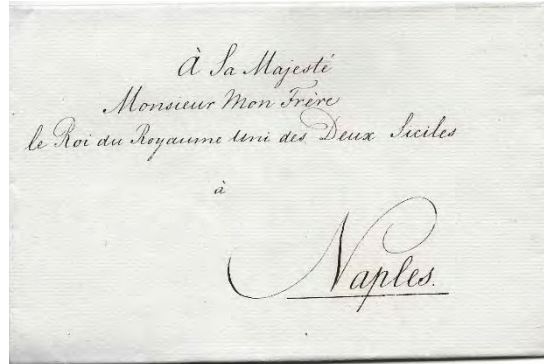 À Sa Majesté
Monsieur Mon Frère
le Roi du Royaume Uni des Deux Siciles
à
Naples.